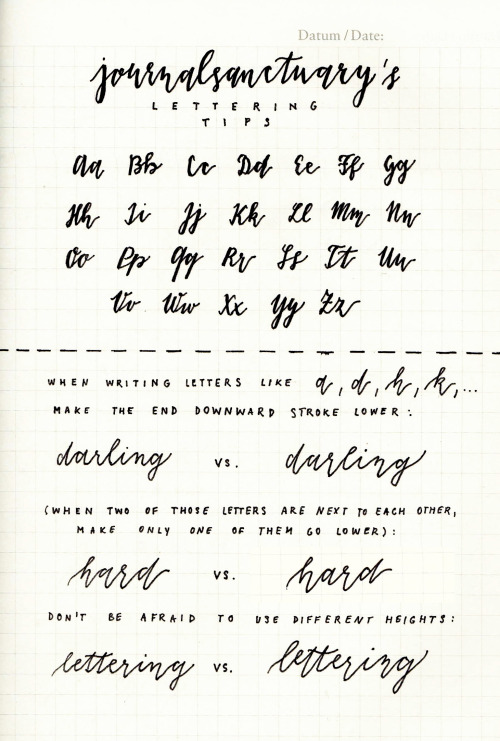 Datum / Date:
journalsanctuary's
LETTERING
TIPS
Aa Bb Cc Dd Ee Ff Gg
Hh Ii Jj Kk Ll Mm Nn
Oo Pp Qq Rr Ss Tt Uu
Vv Ww Xx Yy Zz
WHEN WRITING LETTERS LIKE a, d, h, k, ...
MAKE THE END DOWNWARD STROKE LOWER:
darling vs. darling
(WHEN TWO OF THOSE LETTERS ARE NEXT TO EACH OTHER,
MAKE ONLY ONE OF THEM GO LOWER):
hard vs. hard
DON'T BE AFRAID TO USE DIFFERENT HEIGHTS:
lettering vs. lettering